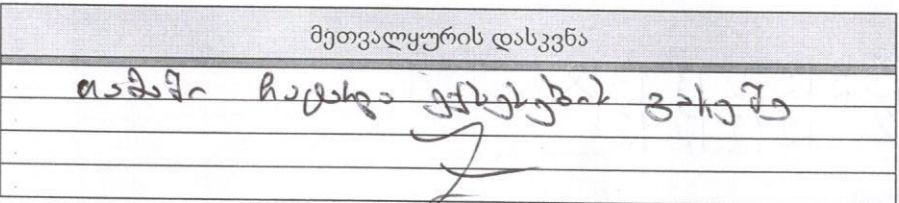 მეთვალყურის დასკვნა
თამაში ჩატარდა ექსცესების გარეშე